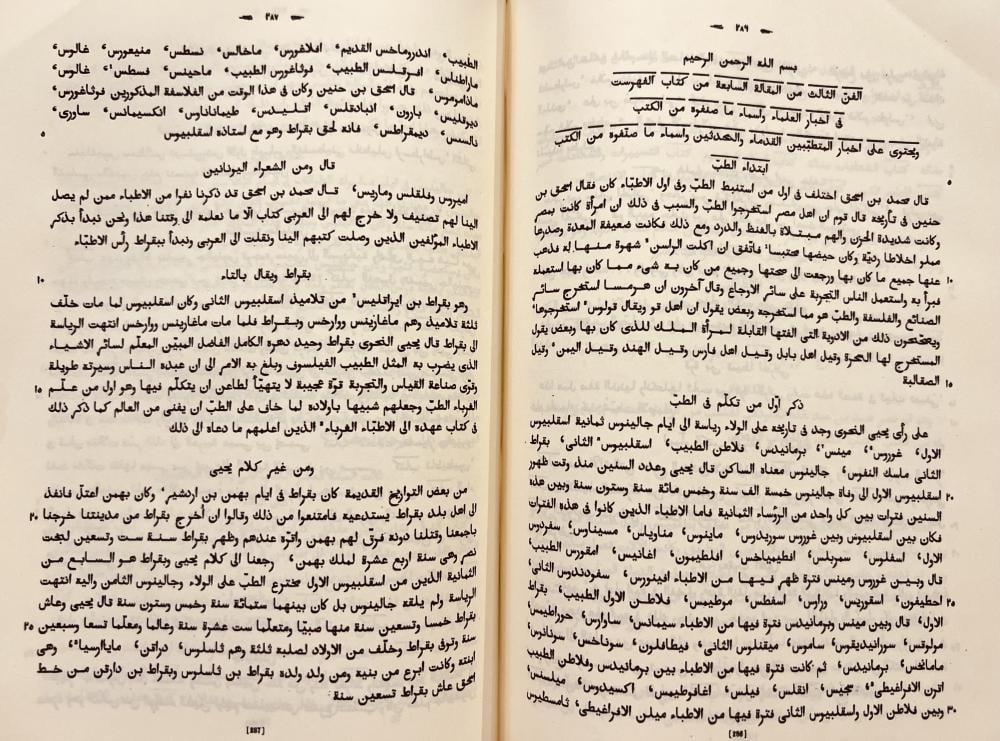 ٢٨٦
بسم الله الرحمن الرحيم
الفنّ الثالث من المقالة السابعة من كتاب الفهرست
فى أخبار العلماء واسماء ما صنفوه من الكتب
ويحتوى على اخبار المتطبّبين القدماء والمحدثين واسماء ما صنّفوه من الكتب
ابتداء الطبّ
٥
قال محمد بن اسحق اختلف فى اول من استنبط الطبّ وفى اول الاطبّاء كان فقال اسحق بن
حنين فى تأريخة قال قوم ان اهل مصر استخرجوا الطبّ والسبب فى ذلك ان امرأة كانت بمصر
وكانت شديدة الحزن والهم مبتلاة بالغيظ والدرد ومع ذلك فكانت ضعيفة المعدة وصدرها
مملو اخلاطا رديّة وكان حيضها محتبسا فاتّفق ان اكلت الراسن شهوة منها له فذهب
عنها جميع ما كان بها ورجعت الى صحتها وجميع من كان به شىء مما كان بها استعمله ١٠
فبرأ به واستعمل الناس التجربة على سائر الاوجاع وقال آخرون ان هرمسا استخرج سائر
الصنائع والفلسفة والطبّ هو مما استخرجه وبعض يقول ان اهل قو ويقال قولوس استخرجوها
ويصحّحون ذلك من الادوية التى الفتها القابلة لمرأة الملك للذى كان بها وبعض يقول
المستخرج لها السحرة وقيل اهل بابل وقيل اهل فارس وقيل الهند وقيل اليمن وقيل
الصقالبة ١٥
ذكر أوّل من تكلّم فى الطبّ
على رأى يحيى النحوى وجد فى تاريخة على الولاء رياسة الى ايام جالينوس ثمانية اسقلبيوس
الاول، غوروس، مينس، برمانيدس، فلاطن الطبيب، اسقلبيوس الثانى، بقراط
الثانى ماسك النفوس، جالينوس معناه الساكن قال يحيى وعدد السنين منذ وقت ظهور
اسقلبيوس الاول الى وفاة جالينوس خمسة الف سنة وخمس مائة سنة وستون سنة وبين هذه ٢٠
السنين فترات بين كل واحد من الروّساء الثمانية فاما الاطباء الذين كانوا فى هذه الفترات
فكان بين اسقلبيوس وبين غوروس سوريدوس، ماينوس، مناوياس، مسيناوس، سفردوس
الاول، اسفلوس، سمربلس، افطيمياخس، افلطيمون، اغانيس، امقورس الطبيب،
قال وبين غوروس ومينس فترة ظهر فيها من الاطباء افينورس، سفوندندوس الثانى،
احطيفون، اسقوريس، وراوس، اسفطس، موطيمس، فلاطن الاول الطبيب، بقراط ٢٥
الاول، قال وبين مينس وبرمانيدس فترة فيها من الاطباء سيمانس، ساوارس، حوراطيمس،
مولوقس، سورانيديقوس، ساموس، ميقنلوس الثانى، فيطافلون، سوناخس، سوناوس،
مامانخس، برمانيدس، ثم كانت فترة فيها من الاطباء بين برمانيدس وفلاطن الطبيب
اقرن الافراغيطى، ججيس، انقلس، فيلس، اغافوطيمس، اكسيدوس، ميلسنس
وبين فلاطن الاول واسقلبيوس الثانى فترة فيها من الاطباء ميلن الافراغيطى، ثامسطيوس ٣٠
[286]
٢٨٧
الطبيب، اندروماخس القديم، افلاغورس، ماخالس، نسطس، منيعورس، غالوس،
ماراطناس، افرقلس الطبيب، فوثاغورس الطبيب، ماحينس، فسطس، غالوس،
ماذاموموس، قال اسحق بن حنين وكان فى هذا الوقت من الفلاسفة المذكورين فوثاغورس،
ديرقليس، بارون، انبادقلس، اقليدس، طيماناناوس، انكسيمانس، ساورى،
ثالسنس، ديمقراطس، فانه لحق بقراط وهو مع استاذه اسقلبيوس ٥
قال ومن الشعراء اليونانين
اميروس وفلقلس وماريس، قال محمد بن اسحق قد ذكرنا نفرا من الاطباء ممن لم يصل
الينا لهم تصنيف ولا خرج لهم الى العربى كتاب الّا ما نعلمه الى وقتنا هذا ونحن نبدأ بذكر
الاطباء المؤلفين الذين وصلت كتبهم الينا ونقلت الى العربى ونبدأ ببقراط رأس الاطبّاء
بقراط ويقال بالتاء ١٠
وهو بقراط بن ايراقليس من تلاميذ اسقلبيوس الثانى وكان اسقلبيوس لما مات خلّف
ثلثة تلاميذ وهم ماغارينس ووارخس وبقراط فلما مات ماغارينس ووارخس انتهت الرياسة
الى بقراط قال يحيى النحوى بقراط وحيد دهره الكامل الفاضل المبيّن المعلّم لسائر الاشياء
الذى يضرب به المثل الطبيب الفيلسوف وبلغ به الامر الى ان عبده الناس وسيرته طويلة
وقوّى صناعة القياس والتجربة قوّة عجيبة لا يتهيّأ لطاعن ان يتكلّم فيها وهو اول من علّم ١٥
الغرباء الطبّ وجعلهم شبيها باولاده لما خاف على الطبّ ان يفنى من العالم كما ذكر ذلك
فى كتاب عهده الى الاطبّاء الغرباء الذين اعلمهم ما دعاه الى ذلك
ومن غير كلام يحيى
من بعض التواريخ القديمة كان بقراط فى ايام بهمن بن اردشير، وكان بهمن اعتلّ فانفذ
الى اهل بلد بقراط يستدعيه فامتنعوا من ذلك وقالوا ان أخرج بقراط من مدينتنا خرجنا ٢٠
باجمعنا وقتلنا دونه فرق لهم بهمن واقرّه عندهم وظهر بقراط سنة ست وتسعين لبخت
نصر وهى سنة اربع عشرة لملك بهمن، رجعنا الى كلام يحيى وبقراط هو السابع من
الثمانية الذين من اسقلبيوس الاول مخترع الطبّ على الولاء وجالينوس الثامن واليه انتهت
الرياسة ولم يلقه جالينوس بل كان بينهما ستمائة سنة وخمس وستون سنة قال يحيى وعاش
بقراط خمسا وتسعين سنة منها صبيّا ومتعلّما ست عشرة سنة وعالما ومعلّما تسعا وسبعين ٢٥
سنة وتوفى بقراط وخلّف من الاولاد لصلبه ثلثة وهم ثاسلوس، دراقن، ماياارسيا، وهى
ابنته وكانت ابرع من بنيه ومن ولد ولده بقراط بن ثاسلوس وبقراط بن دارقن من خط
اسحق عاش بقراط تسعين سنة
[287]